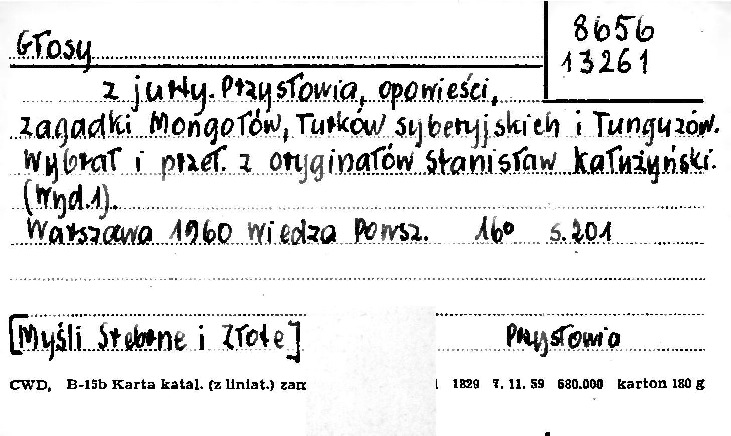 Głosy
8656
13261
z jurty. Przysłowia, opowieści,
zagadki Mongołów, Turków syberyjskich i Tunguzów.
Wybrał i przeł. z oryginałów Stanisław Kałużyński.
(Wyd.1).
Warszawa 1960 Wiedza Powsz. 16° s.201
[Myśli Srebrne i Złote] Przysłowia
CWD, B-15b Karta katal. (z liniat.) zam 1829 7. 11. 59 680.000 karton 180 g